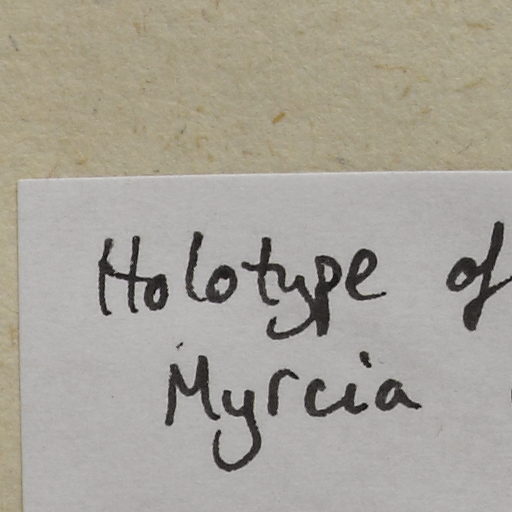 Holotype of
Myrcia